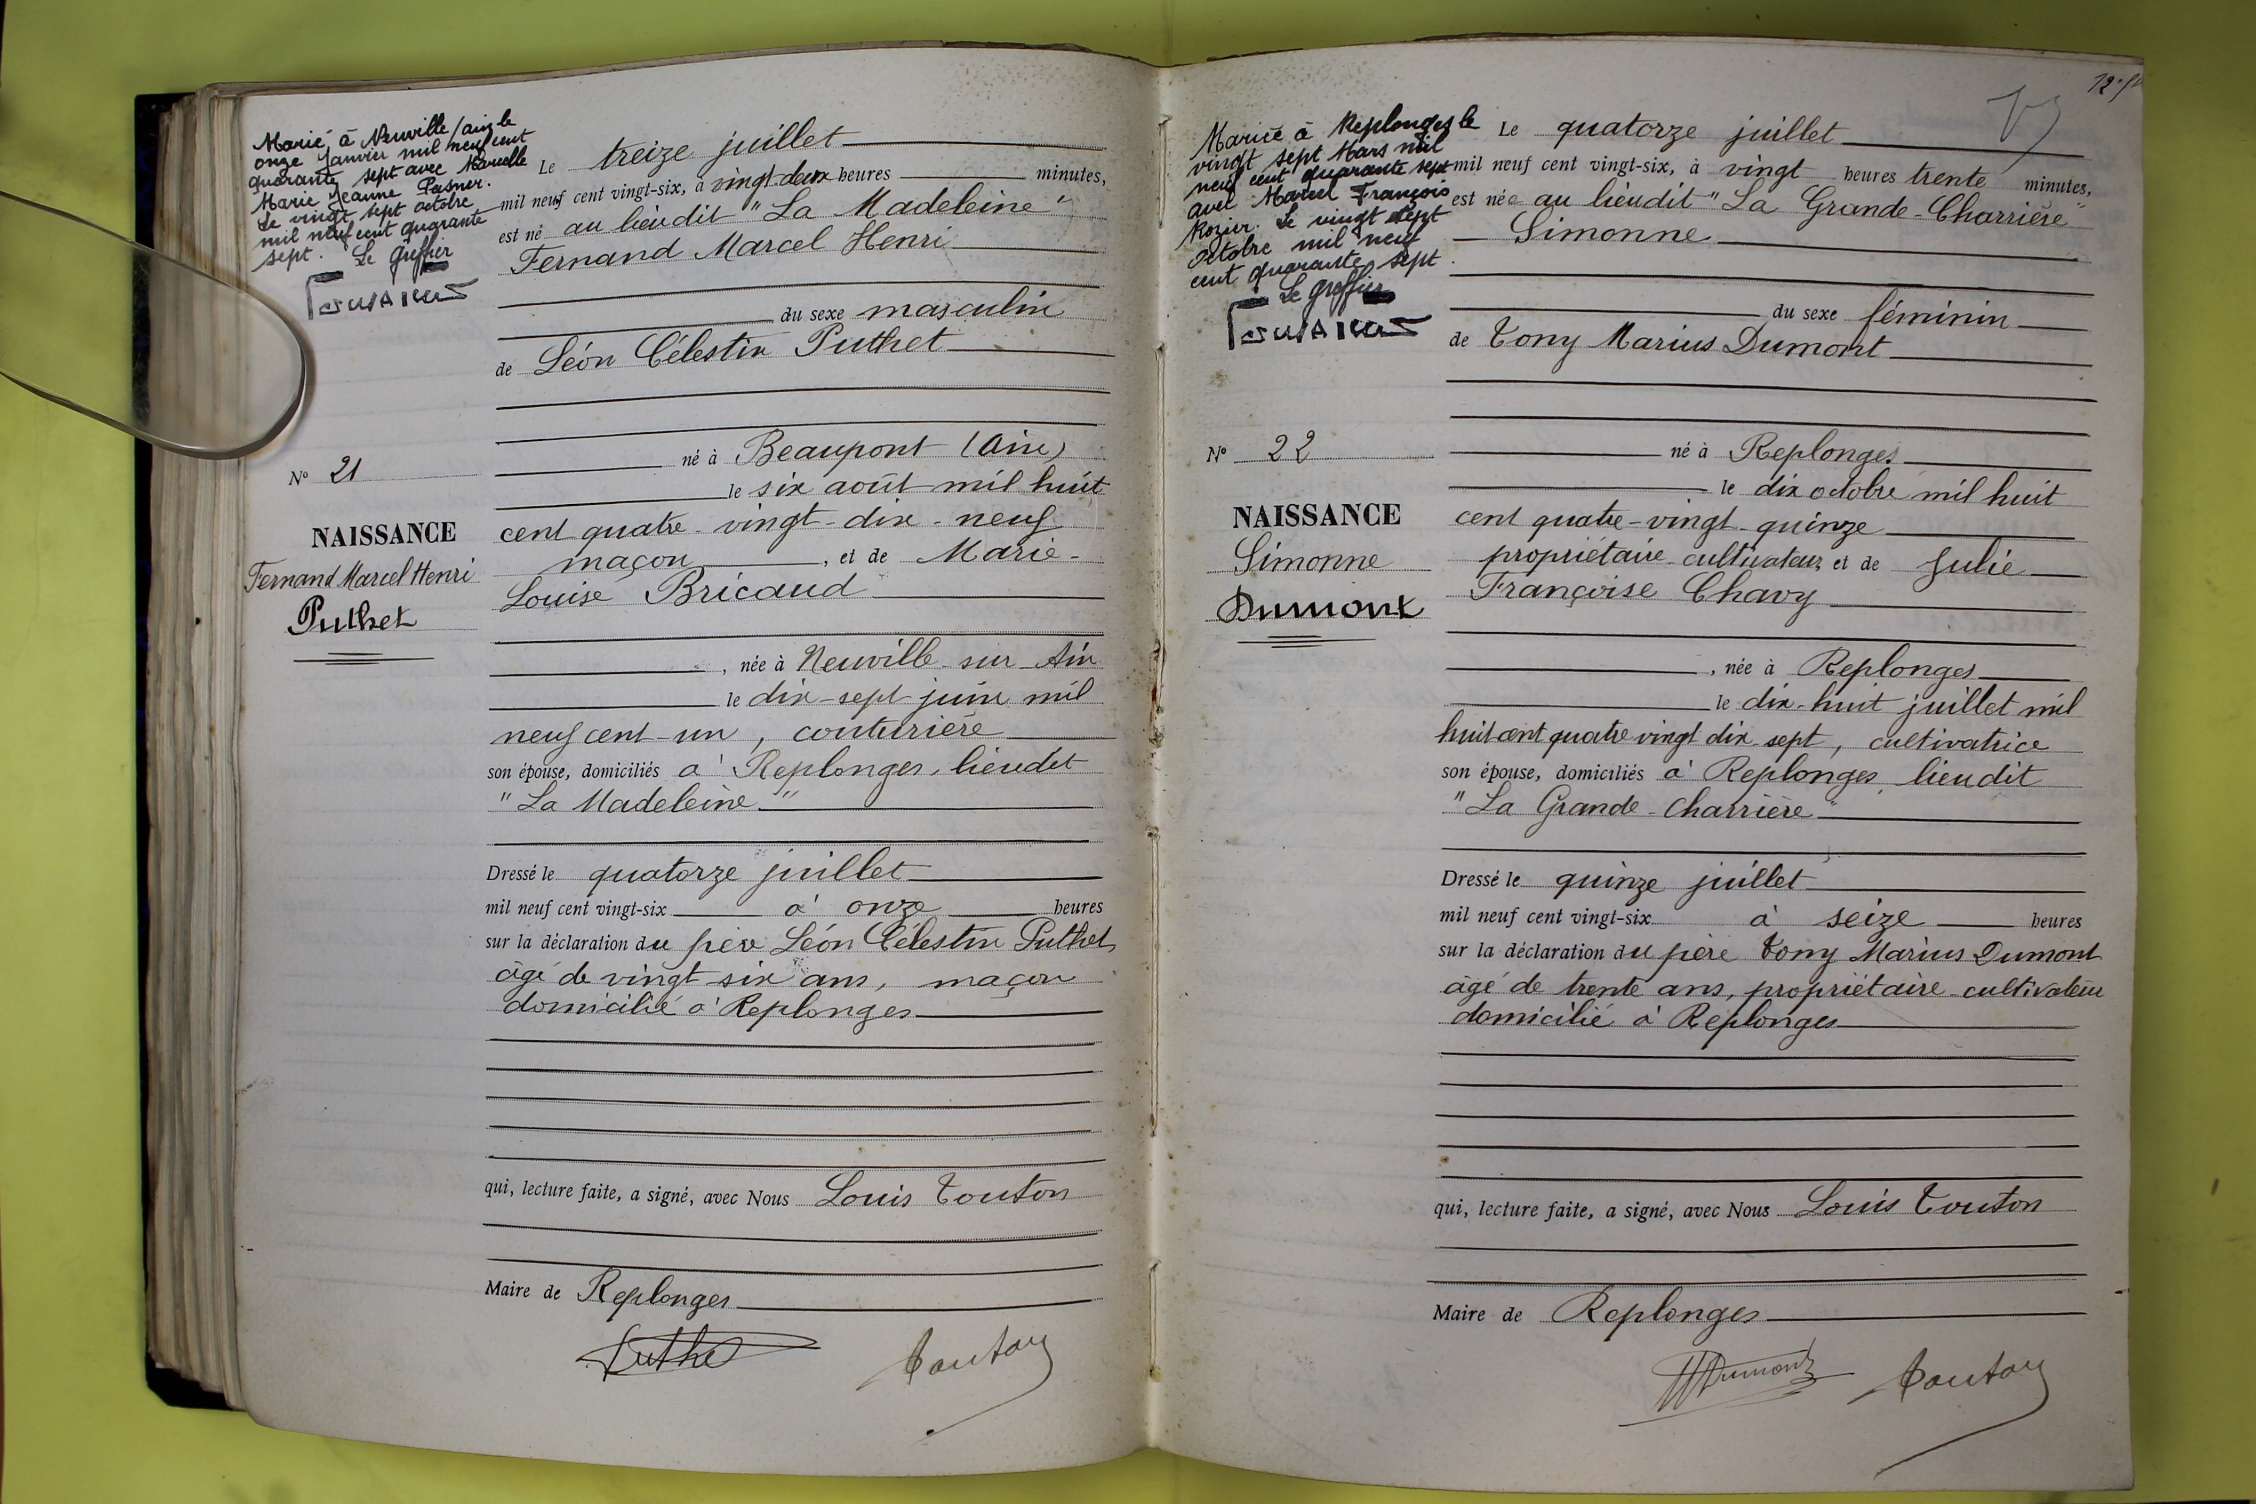 Marié à Neuville/ain le
onze Janvier mil neuf cent
quarante sept avec Marcelle
Marie Jeanne Pasner.
Le vingt sept octobre
mil neuf cent quarante
sept. Le Greffier
N° 21
NAISSANCE
Fernand Marcel Henri
Puthet
Le treize juillet
mil neuf cent vingt-six, à vingt-deux heures minutes,
est né au lieudit "La Madeleine"
Fernand Marcel Henri
du sexe masculin
de Léon Célestin Puthet
né à Beaupont (Ain)
le six août mil huit
cent quatre-vingt-dix-neuf
maçon, et de Marie-
Louise Bricaud
, née à Neuville-sur-Ain
le dix-sept juin mil
neuf cent-un, couturière
son épouse, domiciliés à Replonges, lieudit
"La Madeleine"
Dressé le quatorze juillet
mil neuf cent vingt-six à onze heures
sur la déclaration du père Léon Célestin Puthet,
âgé de vingt six ans, maçon
domicilié à Replonges
qui, lecture faite, a signé, avec Nous Louis Touton
Maire de Replonges
Puthet Touton
12
Mariée à Replonges le
vingt sept Mars mil
neuf cent quarante sept
avec Marcel François
Rozier. Le vingt sept
octobre mil neuf
cent quarante sept.
Le Greffier
N° 22
NAISSANCE
Simonne
Dumont
Le quatorze juillet
mil neuf cent vingt-six, à vingt heures trente minutes,
est née au lieudit "La Grande-Charrière"
Simonne
du sexe féminin
de Tony Marius Dumont
né à Replonges
le dix octobre mil huit
cent quatre-vingt-quinze
propriétaire-cultivateur, et de Julie
Françoise Chavy
, née à Replonges
le dix-huit juillet mil
huit cent quatre vingt dix-sept, cultivatrice
son épouse, domiciliés à Replonges, lieudit
"La Grande-Charrière"
Dressé le quinze juillet
mil neuf cent vingt-six à seize heures
sur la déclaration du père Tony Marius Dumont
âgé de trente ans, propriétaire-cultivateur
domicilié à Replonges
qui, lecture faite, a signé, avec Nous Louis Touton
Maire de Replonges
Dumont Touton